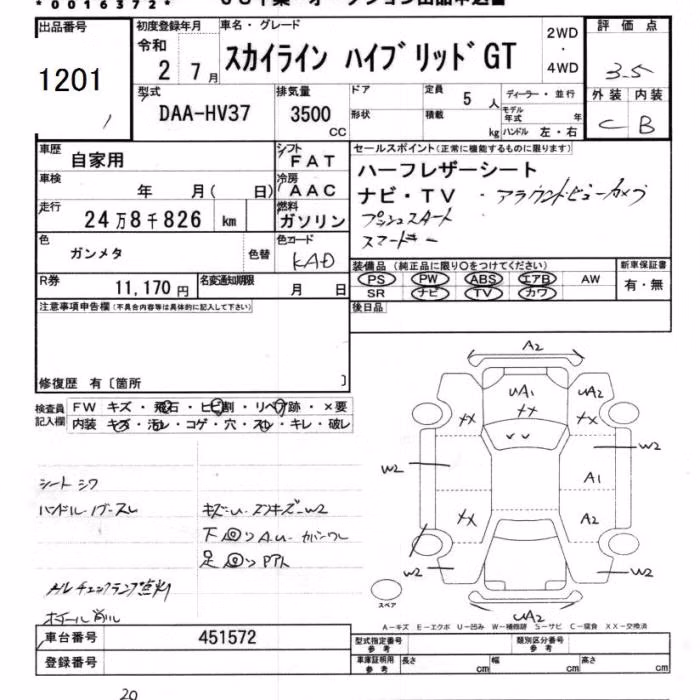 *0016372*
出品番号 初度登録年月 車名・グレード 評価点
1201 令和 2 7月 スカイライン ハイブリッドGT 2WD・4WD 3.5
外装 内装
C B
型式 排気量 ドア 定員 5人 ディーラー・並行
DAA-HV37 3500cc 形状 積載 kg モデル年式 年
ハンドル 左・右
車歴 自家用 シフト FAT セールスポイント(正常に機能するものに限ります)
車検 年 月( 日) 冷房 AAC ハーフレザーシート
ナビ・TV・アラウンドビューカメラ
走行 24万8千826km 燃料 ガソリン プッシュスタート
スマートキー
色 ガンメタ 色替 色コード KAD
装備品(純正品に限り○をつけてください) 新車保証書
PS PW ABS エアB AW 有・無
SR ナビ TV カワ
R券 11,170円 名変通知期限 月 日
注意事項申告欄(不具合内容等は具体的に記入して下さい) 後日品
修復歴 有〔箇所 〕
検査員記入欄 FW キズ・飛石・ヒビ割・リペア跡・×要
内装 キズ・汚レ・コゲ・穴・スレ・キレ・破レ
A2
UA1 UA2
XX XX XX
W2 W2
A1
XX A2
W2 W2
UA2
シートシワ
ハンドル・ノブースレ
下回り
足回り
点灯
ホイール削レ
スペア
A-キズ E-エクボ U-凹み W-補修跡 S-サビ C-腐食 XX-交換済
車台番号 451572 型式指定番号 参考 類別区分番号 参考
登録番号 車庫証明用 参考 長さ cm 幅 cm 高さ cm
20